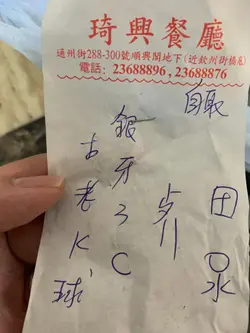 琦興餐廳
通州街288-300號順興閣地下(近欽州街橋底)
電話：23688896,23688876
自取
田〇水
銀牙3C
古老K球